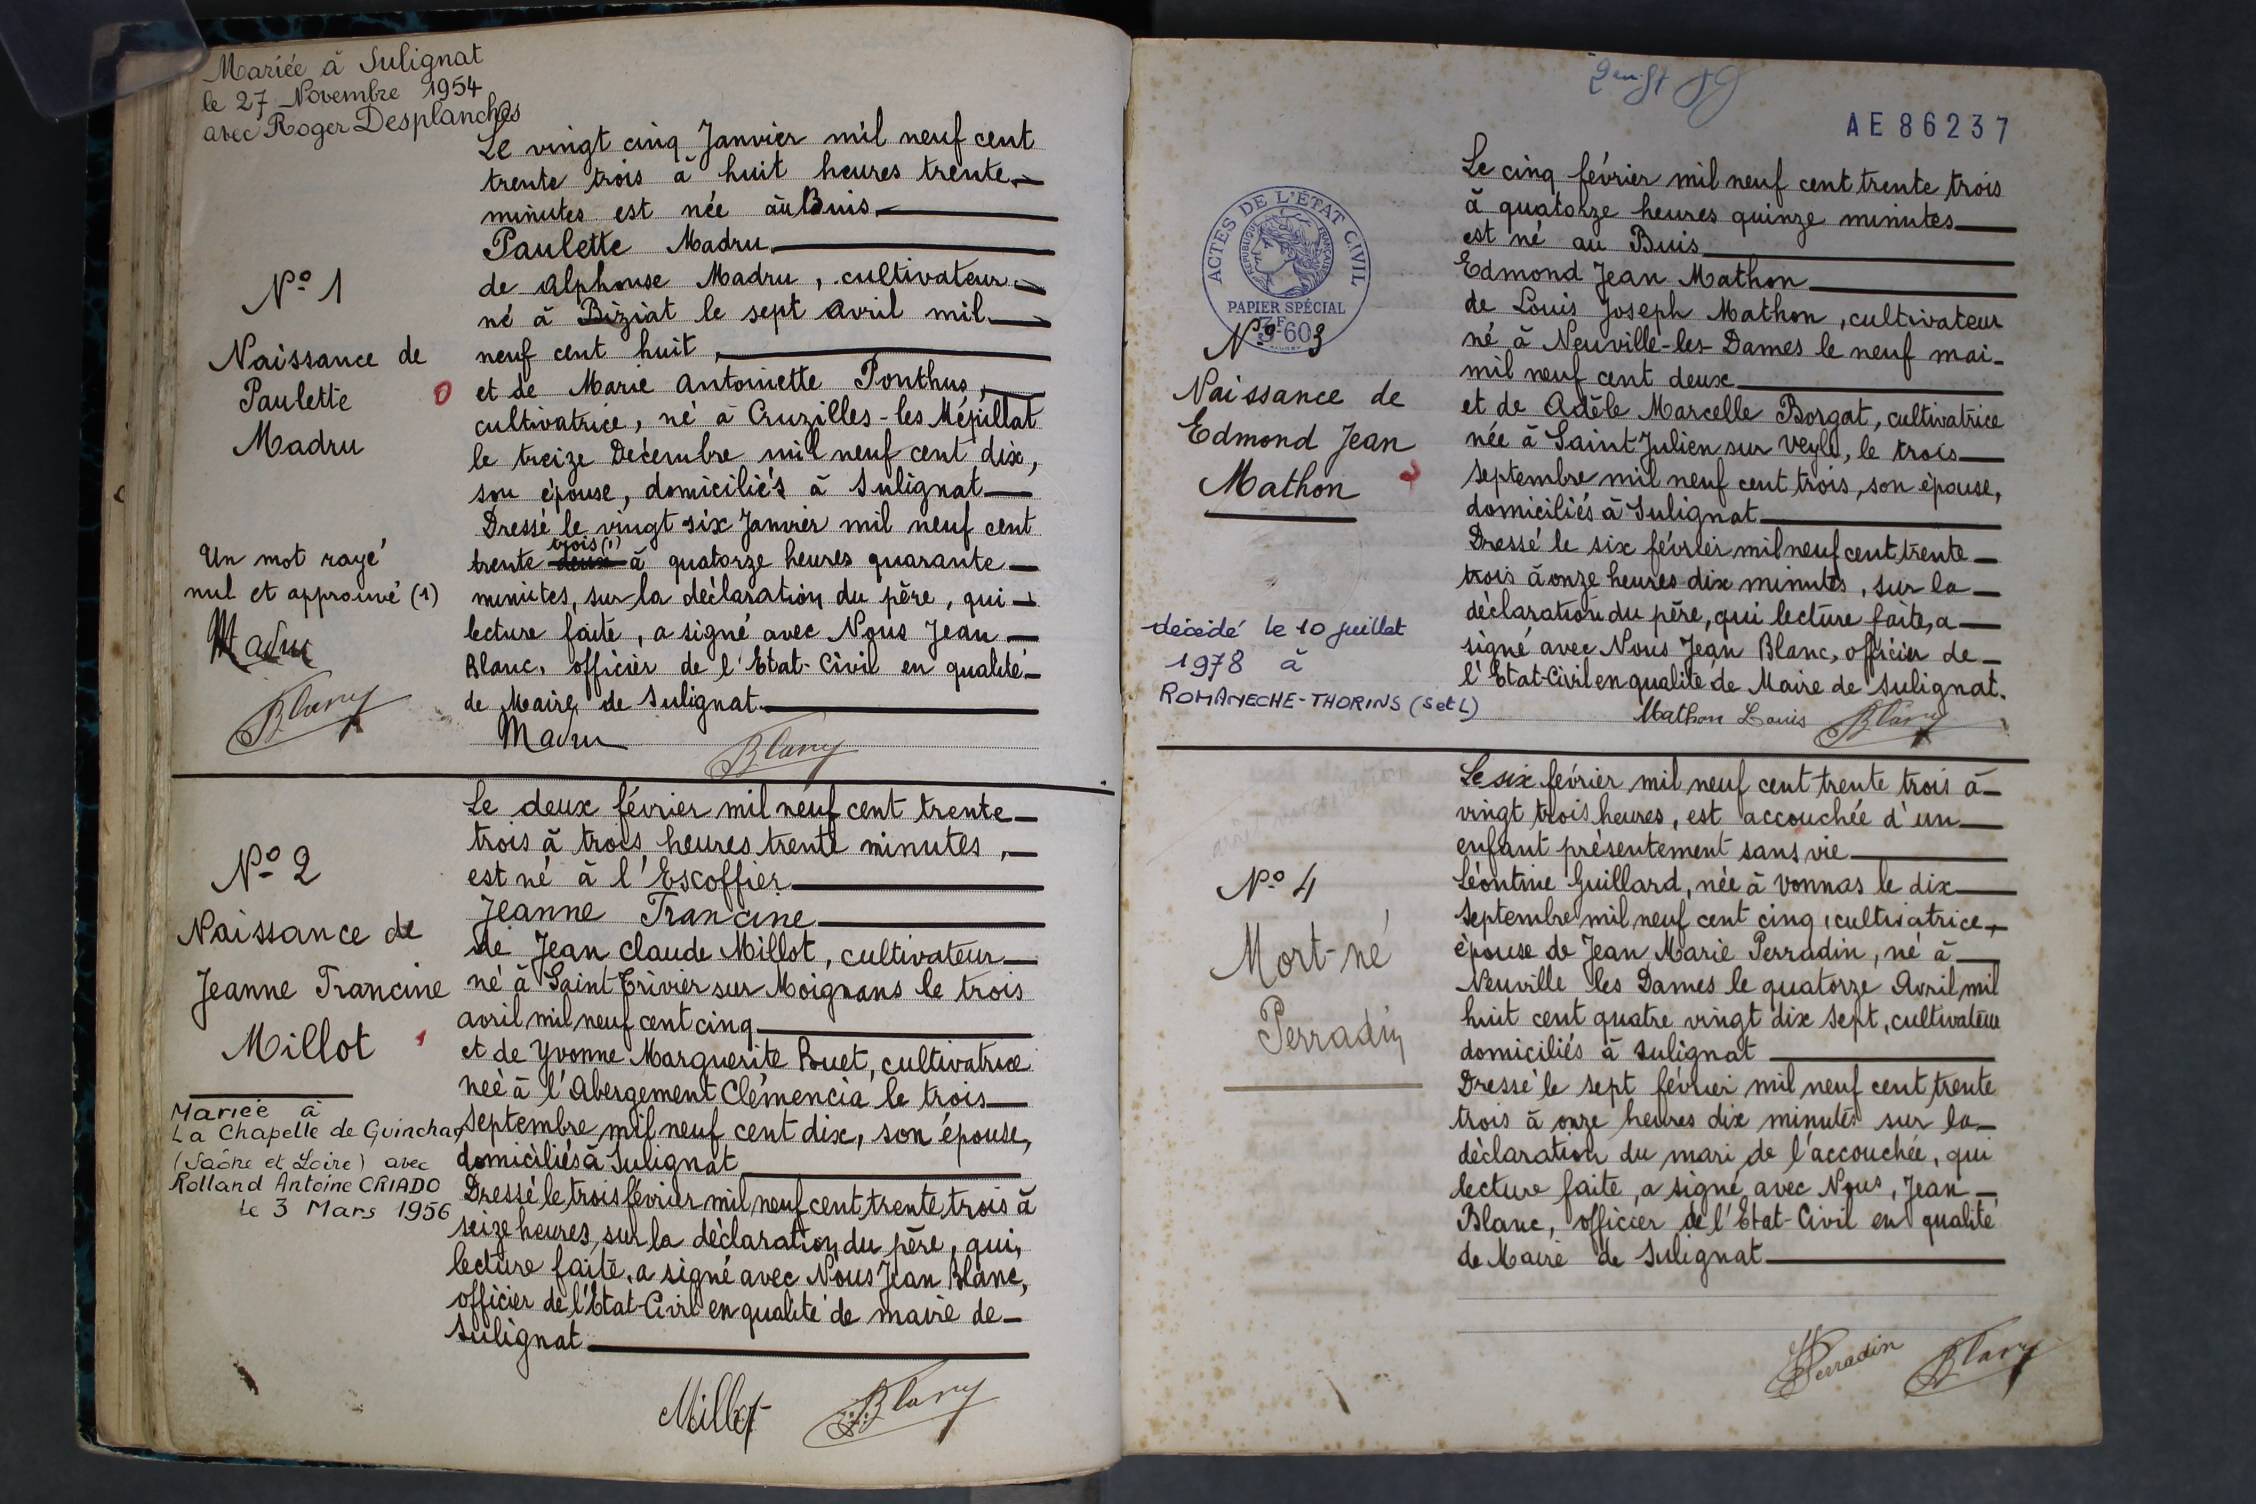 Mariée à Sulignat
le 27 Novembre 1954
avec Roger Desplanches
Nº 1
Naissance de
Paulette
Madru
Un mot rayé
nul et approuvé (1)
Madru
Blanc
Le vingt cinq Janvier mil neuf cent
trente trois à huit heures trente
minutes est née au Buis
Paulette Madru
de Alphonse Madru, cultivateur
né à Biziat le sept Avril mil
neuf cent huit,
et de Marie Antoinette Ponthus,
cultivatrice, né à Cruzilles-les Mépillat
le treize Décembre mil neuf cent dix,
son épouse, domiciliés à Sulignat
Dressé le vingt six Janvier mil neuf cent
trois (1)
trente deux à quatorze heures quarante
minutes, sur la déclaration du père, qui
lecture faite, a signé avec Nous Jean
Blanc, officier de l'Etat-Civil en qualité
de Maire de Sulignat
Madru Blanc
Nº 2
Naissance de
Jeanne Francine
Millot
Mariée à
La Chapelle de Guinchay
(Saône et Loire) avec
Rolland Antoine CRIADO
le 3 Mars 1956
Le deux février mil neuf cent trente
trois à trois heures trente minutes,
est né à l'Escoffier
Jeanne Francine
de Jean Claude Millot, cultivateur
né à Saint Trivier sur Moignans le trois
avril mil neuf cent cinq
et de Yvonne Marguerite Buet, cultivatrice
neé à l'Abergement Clémencia le trois
septembre mil neuf cent dix, son épouse,
domiciliés à Sulignat
Dressé le trois février mil neuf cent trente trois à
seize heures, sur la déclaration du père, qui,
lecture faite, a signé avec Nous Jean Blanc,
officier de l'Etat-Civil en qualité de maire de
Sulignat
Millot Blanc
AE86237
ACTES DE L'ETAT CIVIL
REPUBLIQUE FRANÇAISE
PAPIER SPÉCIAL
3F60
Nº 3
Naissance de
Edmond Jean
Mathon
décédé le 10 juillet
1978 à
ROMANECHE-THORINS (S et L)
Le cinq février mil neuf cent trente trois
à quatorze heures quinze minutes
est né au Buis
Edmond Jean Mathon
de Louis Joseph Mathon, cultivateur
né à Neuville-les-Dames le neuf mai
mil neuf cent deux
et de Adèle Marcelle Borgat, cultivatrice
née à Saint Julien sur Veyle, le trois
septembre mil neuf cent trois, son épouse,
domiciliés à Sulignat
Dressé le six février mil neuf cent trente
trois à onze heures dix minutes, sur la
déclaration du père, qui lecture faite, a
signé avec Nous Jean Blanc, officier de
l'Etat-Civil en qualité de Maire de Sulignat.
Mathon Louis Blanc
Nº 4
Mort-né
Perradin
Le six février mil neuf cent trente trois à
vingt trois heures, est accouchée d'un
enfant présentement sans vie
Léontine Guillard, née à Vonnas le dix
septembre mil neuf cent cinq, cultivatrice,
épouse de Jean Marie Perradin, né à
Neuville les Dames le quatorze Avril mil
huit cent quatre vingt dix sept, cultivateur
domiciliés à Sulignat
Dressé le sept février mil neuf cent trente
trois à onze heures dix minutes sur la
déclaration du mari de l'accouchée, qui
lecture faite, a signé avec Nous, Jean
Blanc, officier de l'Etat-Civil en qualité
de Maire de Sulignat
Perradin Blanc